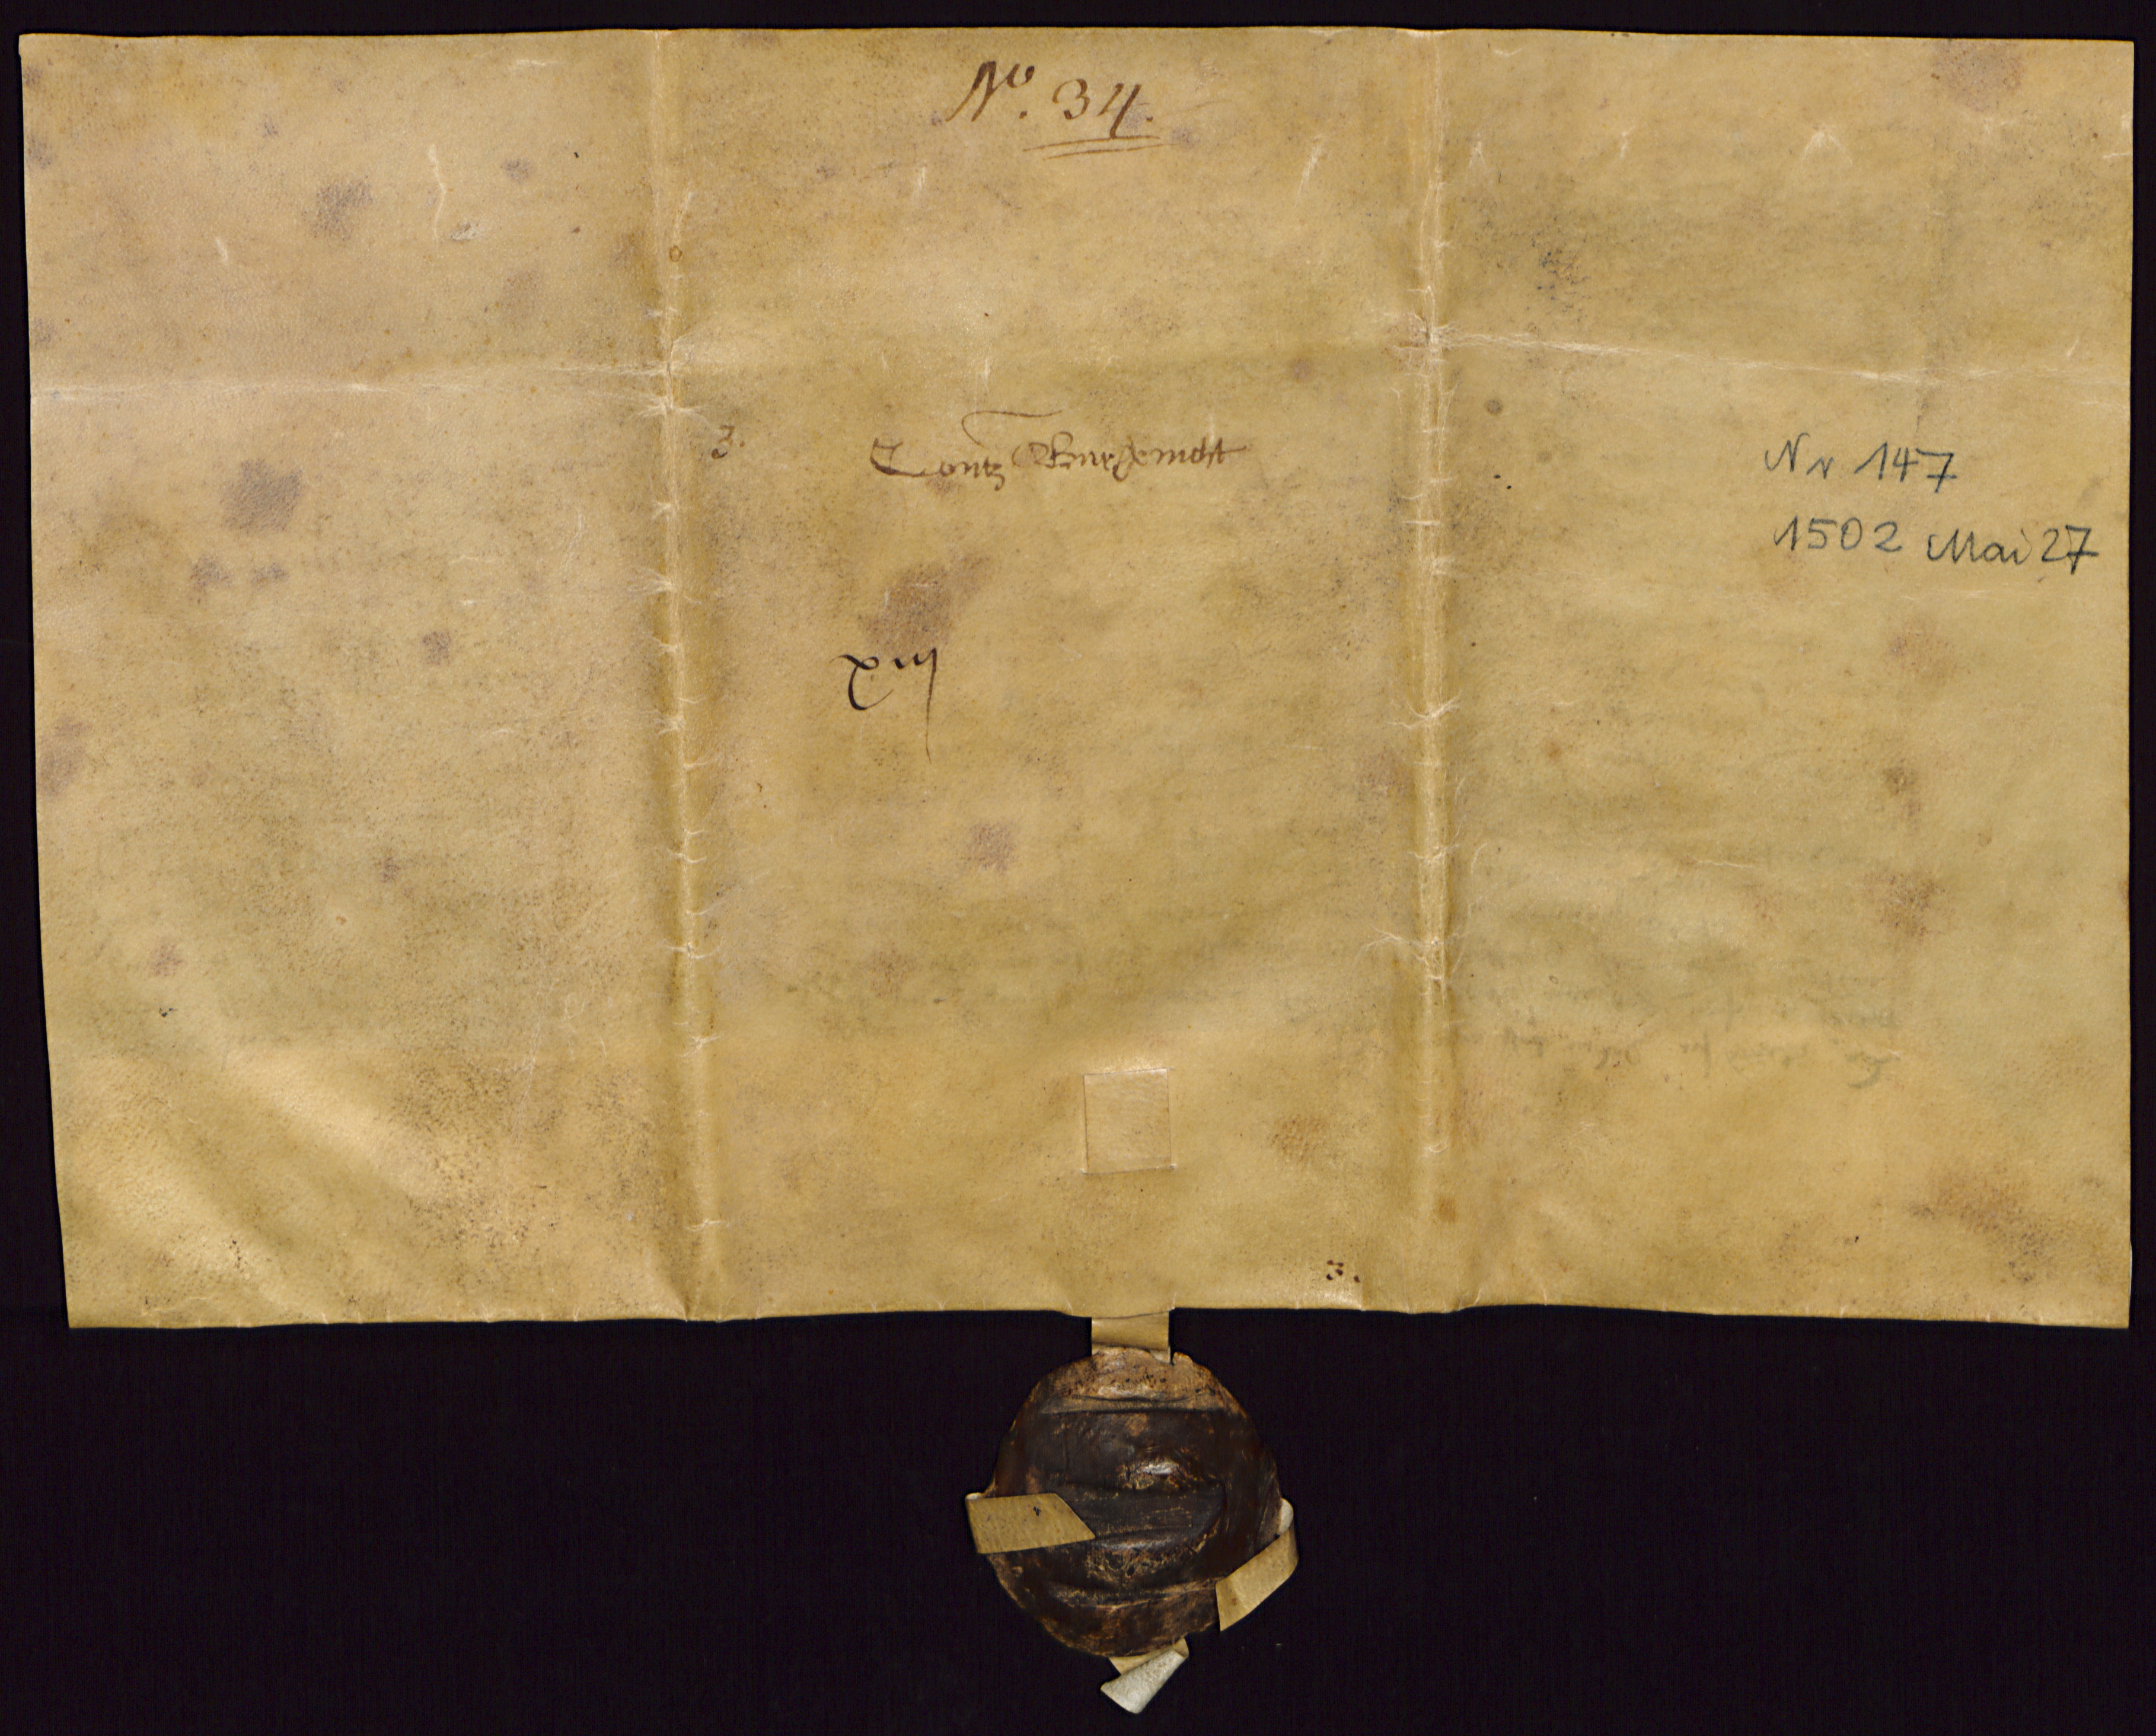 No. 34.
3. Contz
Nr 147
1502 Mai 27
xiij
3.